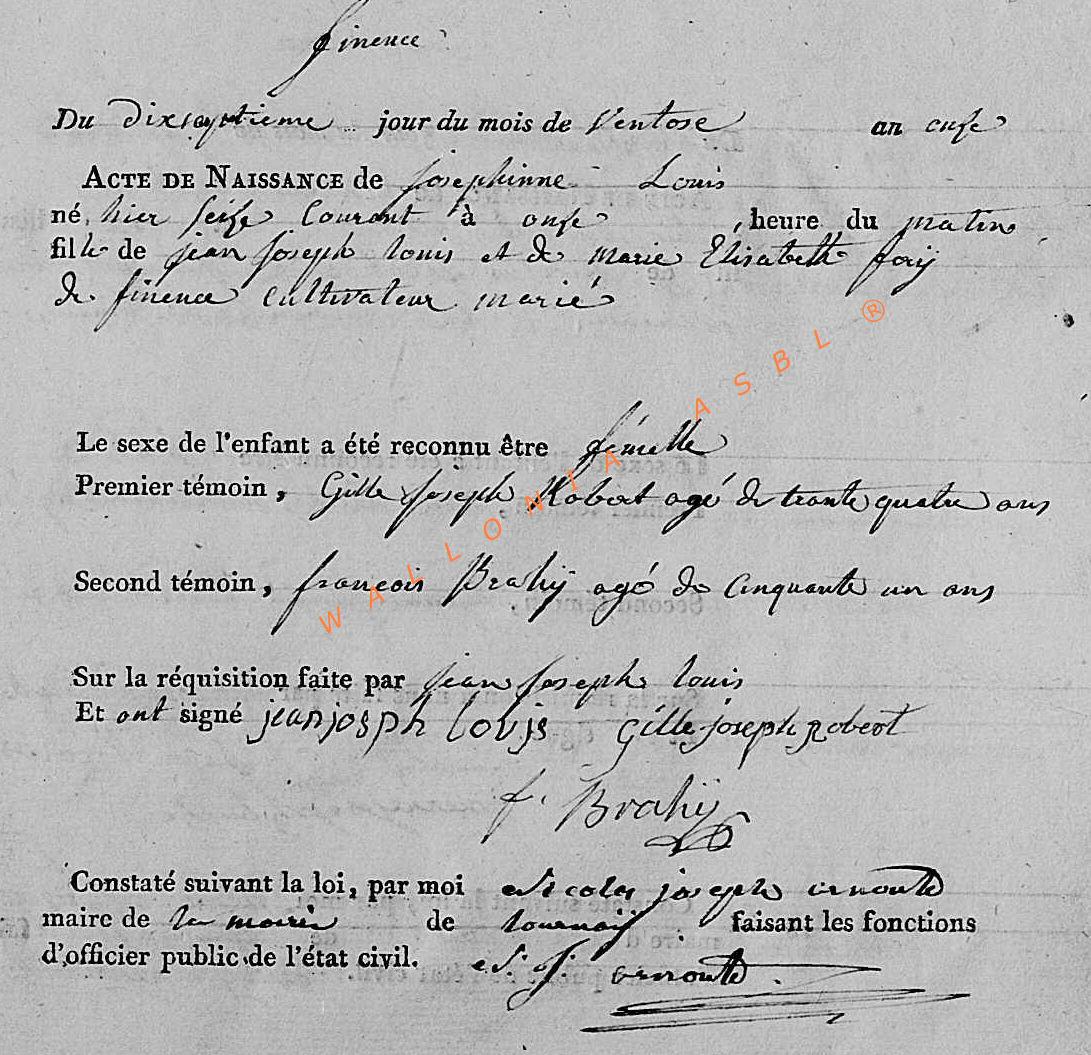 finence
Du dixseptieme jour du mois de Ventose an onse
ACTE DE NAISSANCE de josephinne Louis
né hier seise Courant à onse , heure du matin
fille de jean joseph louis et de marie Elisabeth foÿ
de finence Cultivateur marié
Le sexe de l'enfant a été reconnu être fémelle
Premier témoin , Gille joseph Robert agé de trente quatre ans
Second témoin , francois Brahÿ agé de Cinquante un ans
Sur la réquisition faite par jean joseph louis
Et ont signé jean josph louis Gille joseph robert
f. Brahÿ
Constaté suivant la loi, par moi Nicolas joseph arnould
maire de la mairie de tournaÿ faisant les fonctions
d'officier public de l'état civil. N. j. arnould
WALLONIA ASBL ®